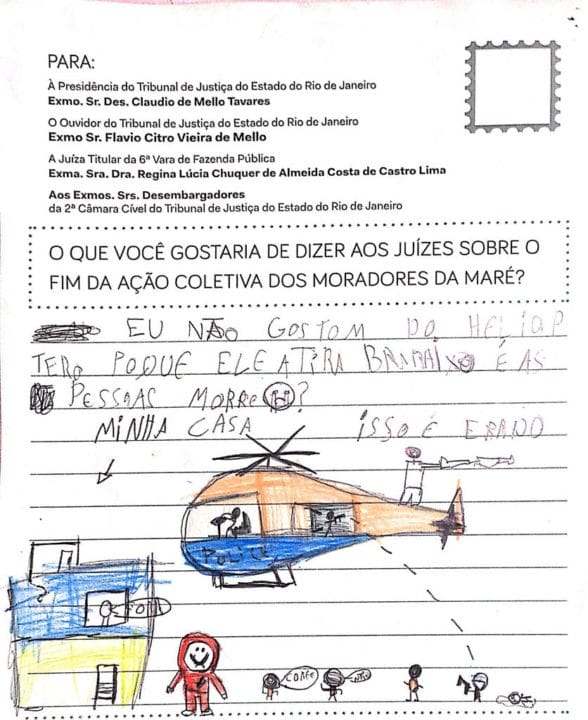 PARA:
À Presidência do Tribunal de Justiça do Estado do Rio de Janeiro
Exmo. Sr. Des. Claudio de Mello Tavares
O Ouvidor do Tribunal de Justiça do Estado do Rio de Janeiro
Exmo Sr. Flavio Citro Vieira de Mello
A Juíza Titular da 6ª Vara de Fazenda Pública
Exma. Sra. Dra. Regina Lúcia Chuquer de Almeida Costa de Castro Lima
Aos Exmos. Srs. Desembargadores
da 2ª Câmara Cível do Tribunal de Justiça do Estado do Rio de Janeiro
O QUE VOCÊ GOSTARIA DE DIZER AOS JUÍZES SOBRE O
FIM DA AÇÃO COLETIVA DOS MORADORES DA MARÉ?
EU NÃO GOSTOM DO HELIOP
TERO POQUE ELE ATIRA BARAIXO É AS
PESSOAS MORRE ?
MINHA CASA ISSO É ERADO
POLICE
CORRE
NÃO